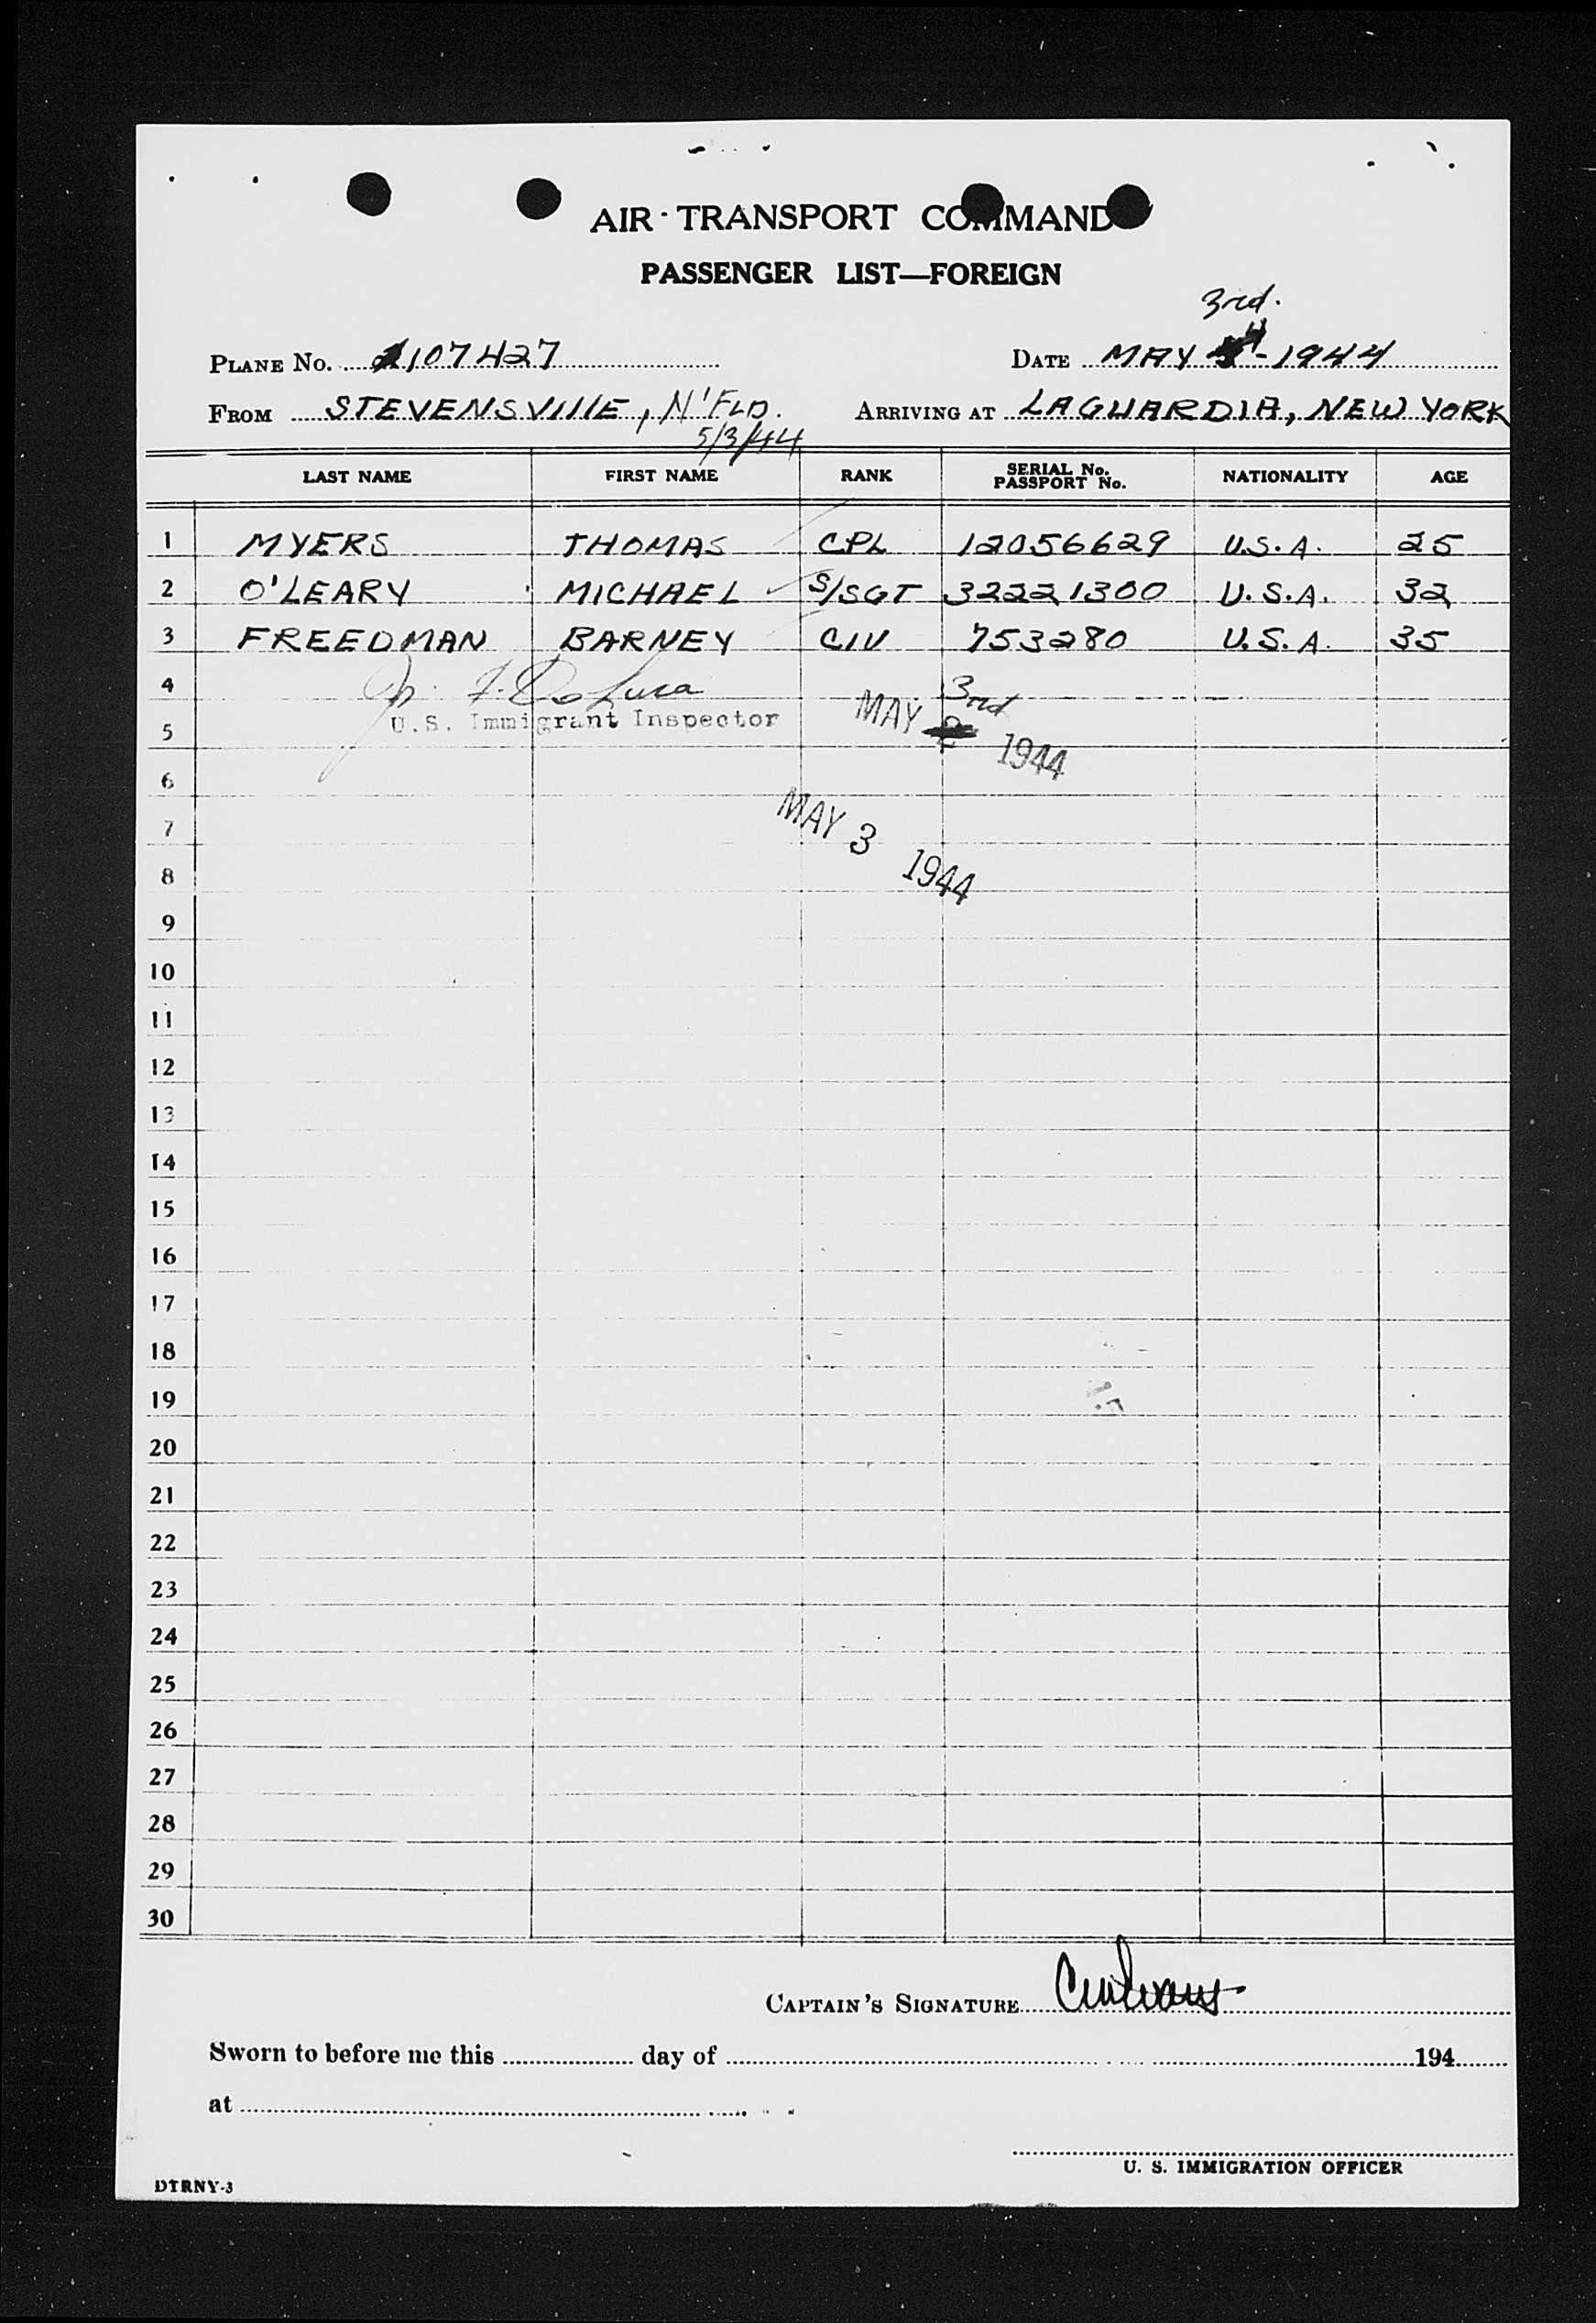 AIR TRANSPORT COMMAND
PASSENGER LIST—FOREIGN
3rd.
PLANE No. 107427 DATE MAY 1944
FROM STEVENSVILLE, N'FLD. ARRIVING AT LAGUARDIA, NEW YORK
5/3/44
LAST NAME FIRST NAME RANK SERIAL No. PASSPORT No. NATIONALITY AGE
1 MYERS THOMAS CPL 12056629 U.S.A. 25
2 O'LEARY MICHAEL S/SGT 32221300 U.S.A. 32
3 FREEDMAN BARNEY CIV 753280 U.S.A. 35
4 DeLuca 3rd
5 U.S. Immigrant Inspector MAY 2 1944
6
7 MAY 3 1944
8
9
10
11
12
13
14
15
16
17
18
19
20
21
22
23
24
25
26
27
28
29
30
CAPTAIN'S SIGNATURE
Sworn to before me this day of 194
at
U. S. IMMIGRATION OFFICER
DTRNY-3